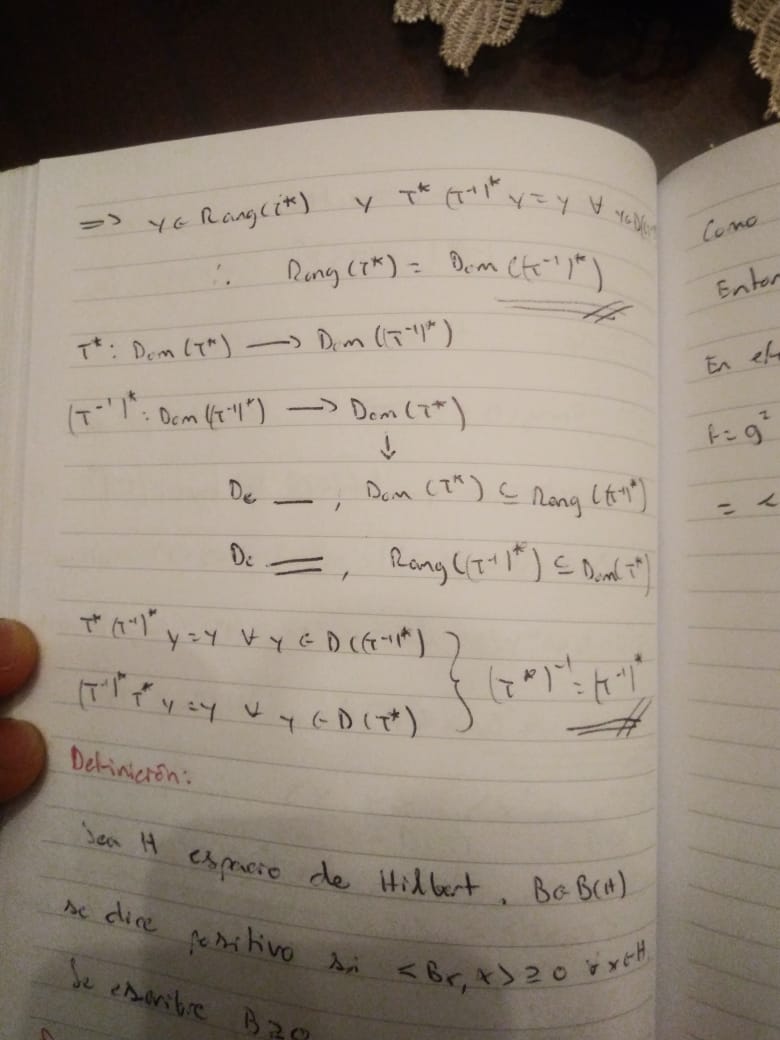 => y ∈ Rang(T*) y T* (T⁻¹)* y = y ∀
∴ Rang(T*) = Dom((T⁻¹)*)
T* : Dom(T*) → Dom((T⁻¹)*)
(T⁻¹)* : Dom((T⁻¹)*) → Dom(T*)
↓
De — , Dom(T*) ⊆ Rang((T⁻¹)*)
De = , Rang((T⁻¹)*) ⊆ Dom(T*)
T* (T⁻¹)* y = y ∀ y ∈ D((T⁻¹)*)
(T*)⁻¹ = (T⁻¹)*
(T⁻¹)* T* y = y ∀ y ∈ D(T*)
Definición:
Sea H espacio de Hilbert. B ∈ B(H)
se dice positivo si <Bx, x> ≥ 0 ∀ x ∈ H
Se escribe B ≥ 0
Como